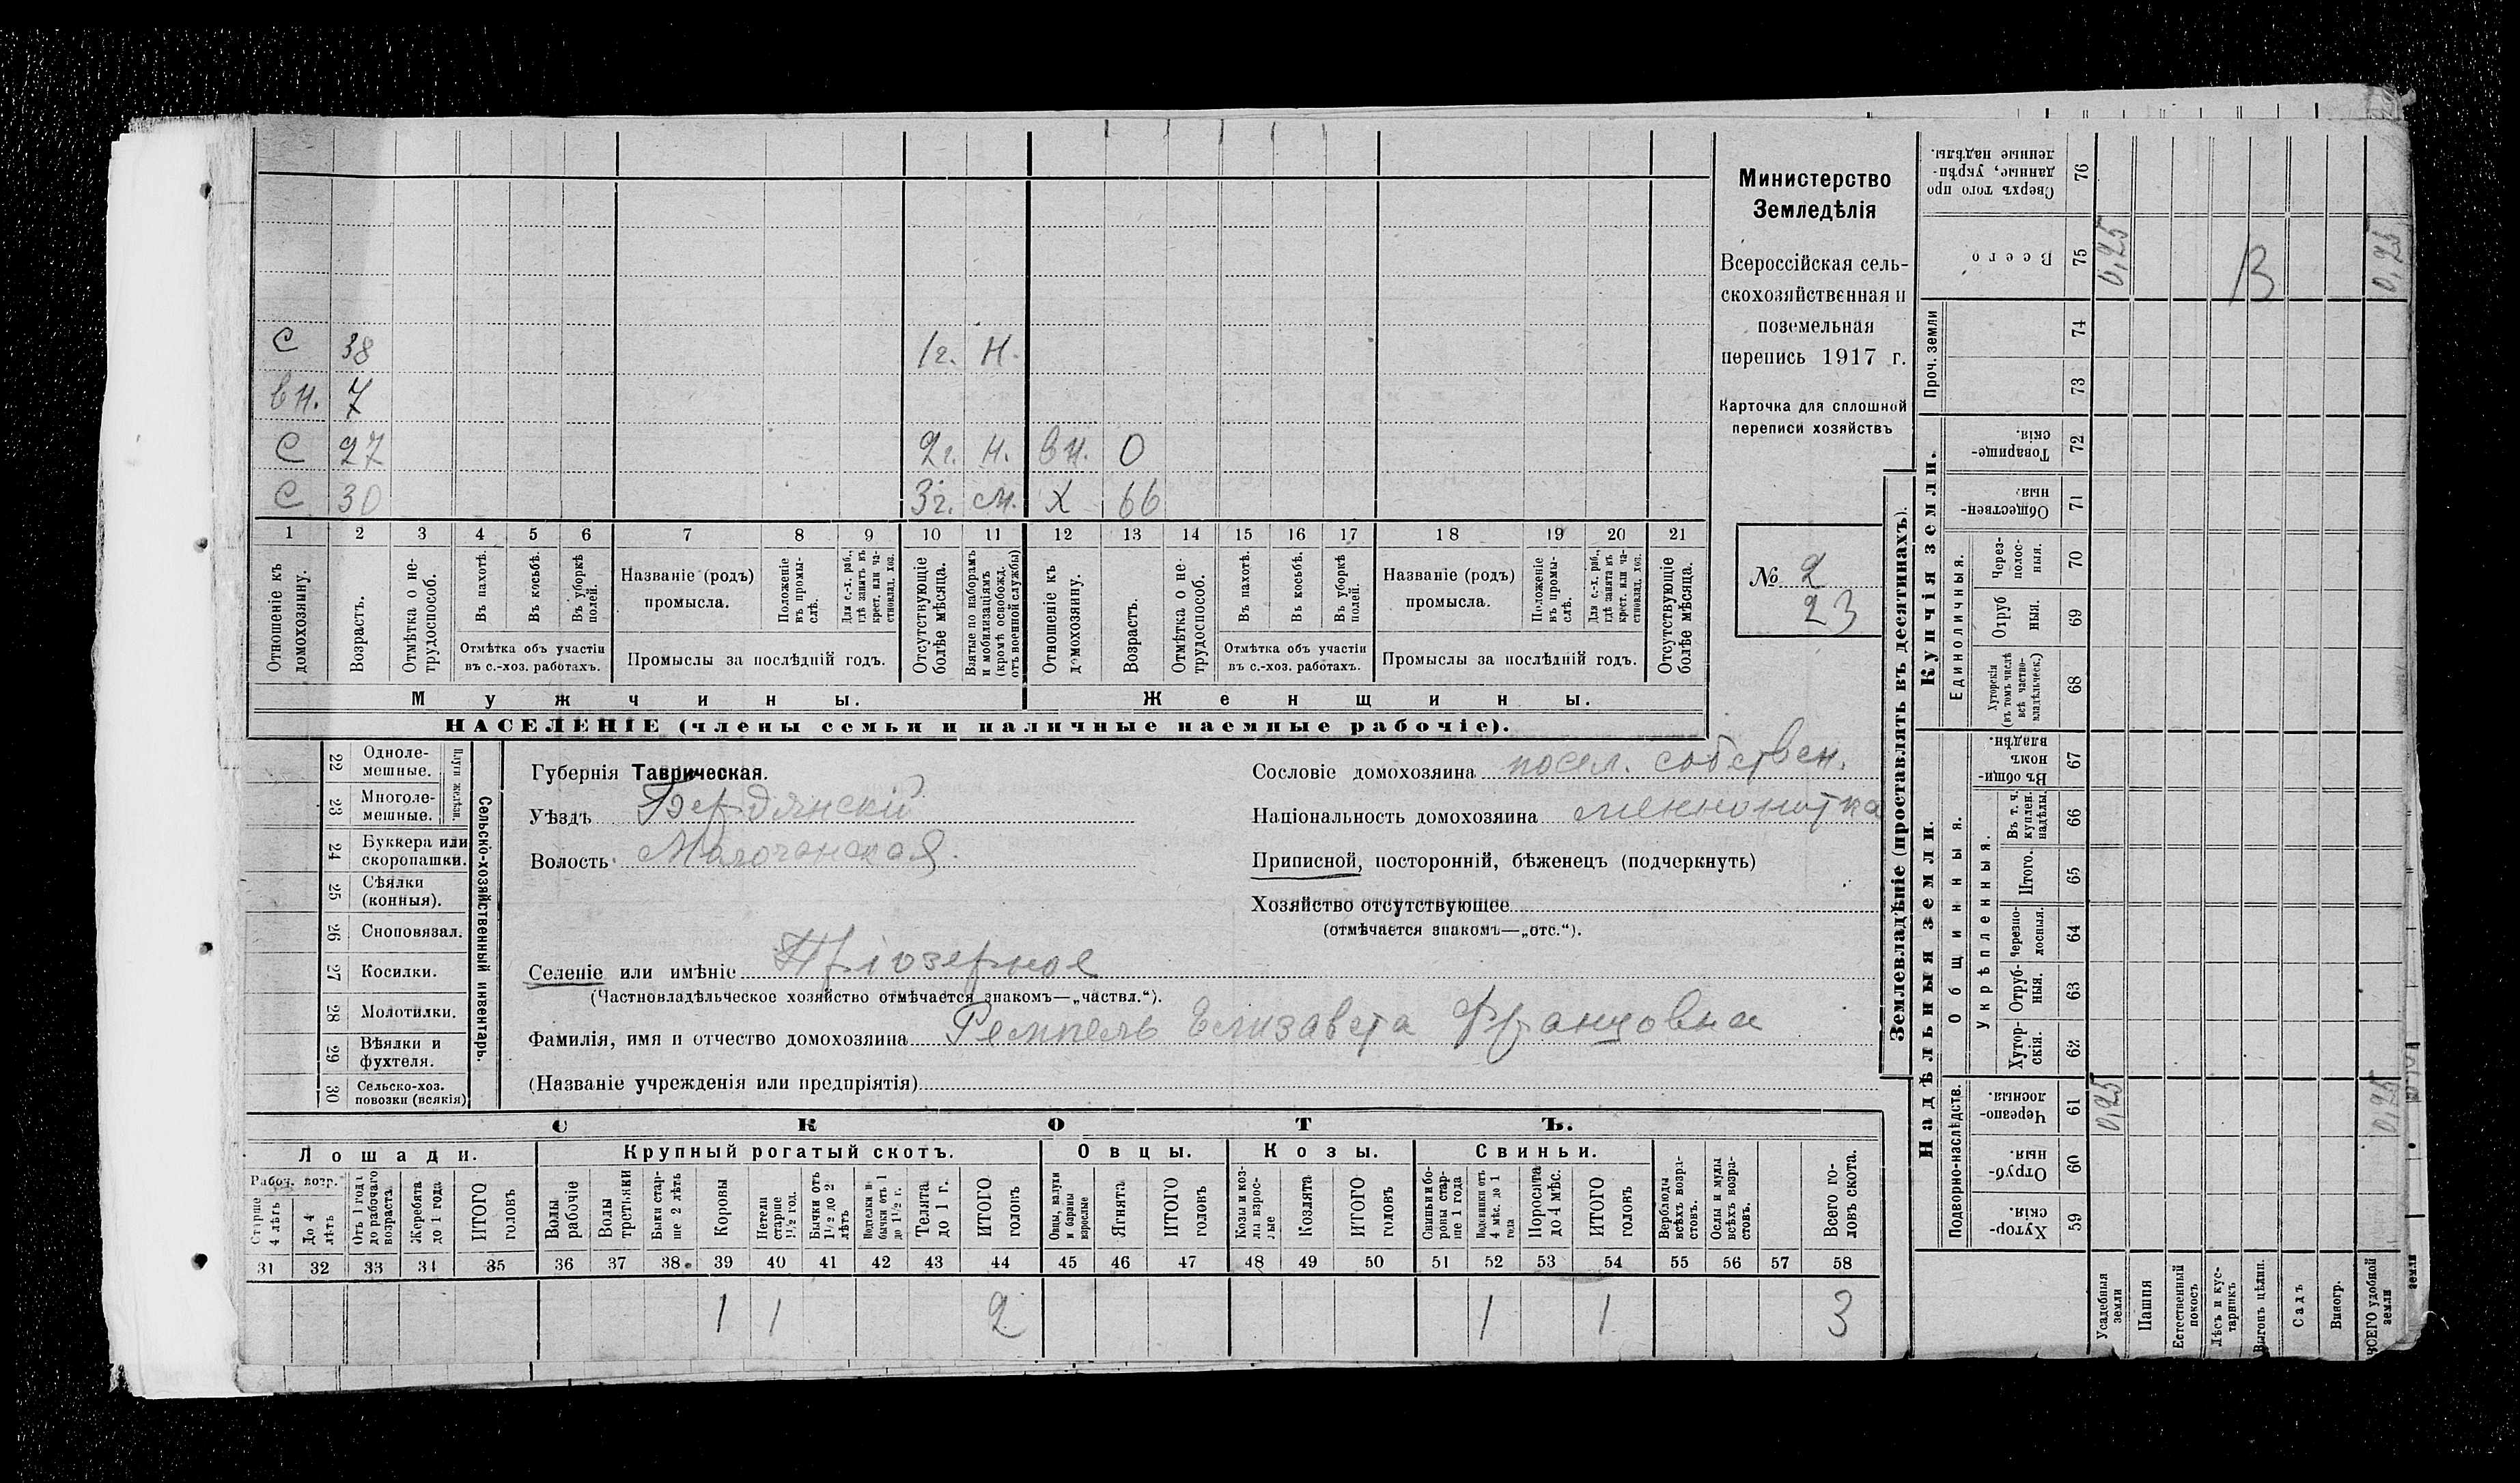 С 38 1г. Н.
вн. 7
С 27 2г. Н. вн. 0
С 30 3г. см. Х 66
1 2 3 4 5 6 7 8 9 10 11 12 13 14 15 16 17 18 19 20 21
Отношеніе къ домохозяину.
Возрастъ.
Отмѣтка о не-
трудоспособ.
Въ пахотѣ.
Въ косьбѣ.
Въ уборкѣ полей.
Отмѣтка объ участіи
въ с.-хоз. работахъ.
Названіе (родъ)
промысла.
Положеніе въ промы-
слѣ.
Для с.-х. раб., гдѣ занятъ въ крест. или ча-
стновлад. хоз.
Промыслы за послѣдній годъ.
Отсутствующіе болѣе мѣсяца.
Взятые по наборамъ и мобилизаціямъ (кромѣ освобожд. отъ военной службы)
Отношеніе къ домохозяину.
Возрастъ.
Отмѣтка о не-
трудоспособ.
Въ пахотѣ.
Въ косьбѣ.
Въ уборкѣ полей.
Отмѣтка объ участіи
въ с.-хоз. работахъ.
Названіе (родъ)
промысла.
Положеніе въ промы-
слѣ.
Для с.-х. раб., гдѣ занята въ крест. или ча-
стновлад. хоз.
Промыслы за послѣдній годъ.
Отсутствующіе болѣе мѣсяца.
Мужчины. Женщины.
НАСЕЛЕНІЕ (члены семьи и наличные наемные рабочіе).
Министерство
Земледѣлія
Всероссійская сель-
скохозяйственная и
поземельная
перепись 1917 г.
Карточка для сплошной
переписи хозяйствъ
№ 2
23
22 Одноле-
мешные.
23 Многоле-
мешные.
Плуги желѣзн.
24 Буккера или
скоропашки.
25 Сѣялки
(конныя).
26 Сноповязал.
27 Косилки.
28 Молотилки.
29 Вѣялки и
фухтеля.
30 Сельско-хоз.
повозки (всякія)
Сельско-хозяйственный инвентарь.
Губернія Таврическая.
Уѣздъ Бердянскій
Волость Молочанская
Селеніе или имѣніе Пріозерное
(Частновладѣльческое хозяйство отмѣчается знакомъ—„частвл.“).
Фамилія, имя и отчество домохозяина Ремпель Елизавета Францовна
(Названіе учрежденія или предпріятія)
Сословіе домохозяина посел. собствен.
Національность домохозяина меннонитка
Приписной, посторонній, бѣженецъ (подчеркнуть)
Хозяйство отсутствующее
(отмѣчается знакомъ—„отс.“).
СКОТЪ.
Лошади. Крупный рогатый скотъ. Овцы. Козы. Свиньи.
Рабоч. возр.
Старше 4 лѣтъ
До 4 лѣтъ
Отъ 1 года до рабочаго возраста
Жеребята до 1 года
ИТОГО головъ
Волы рабочіе
Волы третьяки
Быки стар-
ше 2 лѣтъ
Коровы
Нетели старше 1½ год.
Бычки отъ 1½ до 2 лѣтъ
бычки отъ 1 до 1½ г.
Телята до 1 г.
ИТОГО головъ
Овцы, валухи и бараны взрослые
Ягнята
ИТОГО головъ
Козы и коз-
лы взрос-
лые
Козлята
ИТОГО головъ
Свиньи и бо-
ровы стар-
ше 1 года
Подсвинки отъ 4 мѣс. до 1 года
Поросята до 4 мѣс.
ИТОГО головъ
Верблюды всѣхъ возра-
стовъ.
Ослы и мулы всѣхъ возра-
стовъ.
Всего го-
ловъ скота.
31 32 33 34 35 36 37 38 39 40 41 42 43 44 45 46 47 48 49 50 51 52 53 54 55 56 57 58
1 1 2 1 1 3
Землевладѣніе (проставлять въ десятинахъ).
Купчія земли.
Надѣльныя земли.
Сверхъ того про
данные, укрѣп-
ленные надѣлы.
76
Всего
75 0,25 В 0,25
Проч. земли
74
73
Товарище-
скія.
72
Обществен-
ныя.
71
Единоличныя.
Через-
полос-
ныя.
70
Отруб
ныя.
69
Хуторскія
(въ томъ числѣ
всѣ частно-
владѣльческ.)
68
Общинныя.
Въ общи-
номъ
владѣн.
67
Укрѣпленныя.
Въ т. ч.
куплен.
надѣлы.
66
Итого.
65
Черезпо-
лосныя.
64
Отруб-
ныя.
63
Хутор-
скія.
62
Подворно-наслѣдств.
Черезпо-
лосныя.
61 0,25 0,25
Отруб-
ныя.
60
Хутор-
скія.
59
Усадебныя земли
Пашня
Естественный покосъ
Лѣсъ и кус-
тарникъ
Выгонъ цѣлин.
Садъ
Виногр.
ВСЕГО удобной земли
земли